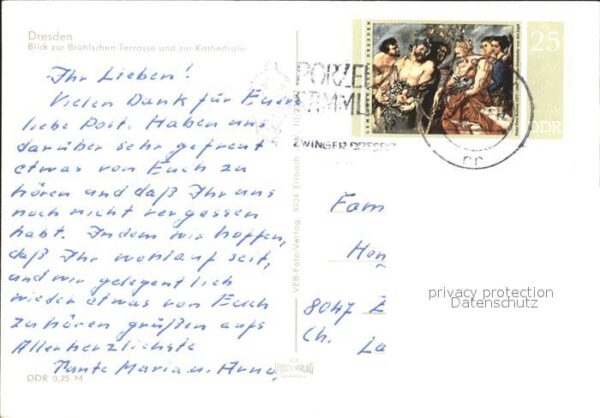 Dresden
Blick zur Brühlschen Terrasse und zur Kathedrale
Ihr Lieben!
Vielen Dank für Eure
liebe Post. Haben uns
darüber sehr gefreut
etwas von Euch zu
hören und daß Ihr uns
noch nicht vergessen
habt. Indem wir hoffen,
daß Ihr wohlauf seit,
und wir gelegentlich
wieder etwas von Euch
zu hören grüßen aufs
Allerherzlichste
Tante Maria u. Arno,
DDR 0,25 M
VEB-Foto-Verlag, 9234 Erlbach
PORZE
SAMML
ZWINGER DRESD
25
DDR
Fam
Hon
8047
Ch. La
privacy protection
Datenschutz